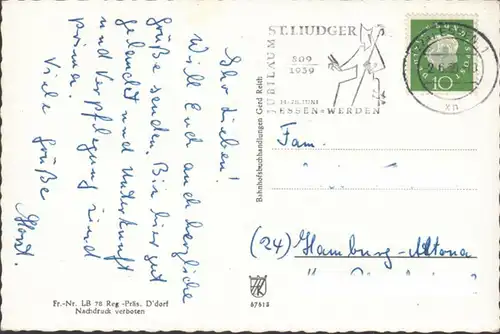 Ihr Lieben!
Will Euch auch herzliche
Grüße senden. Bin hier gut
gelandet und Unterkunft
und Verpflegung sind
prima.
Viele Grüße
Horst.
Fr.-Nr. LB 78 Reg.-Präs. D'dorf
Nachdruck verboten
Bahnhofsbuchhandlungen Gerd Reith
JUBILÄUM
ST. LIUDGER
809
1959
ESSEN-WERDEN
DEUTSCHE BUNDESPOST
10
Fam.
(24) Hamburg-Altona
67618